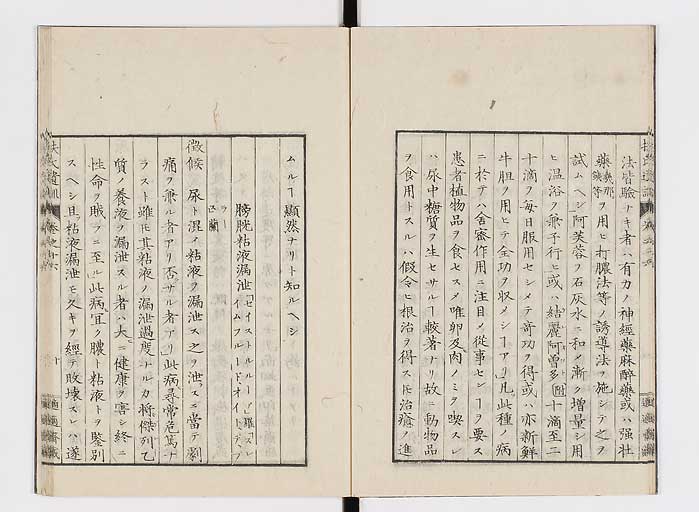 法皆験ナキ者ハ有力ノ神經藥麻醉藥或ハ強壮
藥ヲ用ヒ打膿法等ノ誘導法ヲ施シテ之ヲ
試ムヘシ阿芙蓉ヲ石灰水ニ和メ漸ク増量シ用
ヒ温浴ヲ兼子行ヒ或ハ結麗阿曽多十滴至二
十滴ヲ毎日服用セシメテ奇功ヲ得或ハ亦新鮮
牛胆ヲ用ヒテ全功ヲ収メシヿアリ凡此種ノ病
ニ於テハ舎密作用ニ注目メ從事センヿヲ要ス
患者植物品ヲ食セスメ唯卵及肉ノミヲ喫スレ
ハ尿中糖質ヲ生セサルヿ較著ナリ故ニ動物品
ヲ食用トスルハ假令ヒ根治ヲ得ストモ治療ノ進
ムルヿ顕然ナリト知ルヘシ
膀胱粘液漏泄
徴候 尿ト混メ粘液ヲ漏泄ス之ヲ泄スニ當テ劇
痛ヲ兼ル者アリ否サル者アリ此病尋常危篤ナ
ラスト雖モ其粘液ノ漏泄過度ナルカ將傑列乙
質ノ養液ヲ漏泄スル者ハ大ニ健康ヲ害シ終ニ
性命ヲ賊フニ至ル此病宜ク膿ト粘液トヲ鑒別
スヘシ且粘液漏泄モ久キヲ經テ敗壊スレハ遂
十